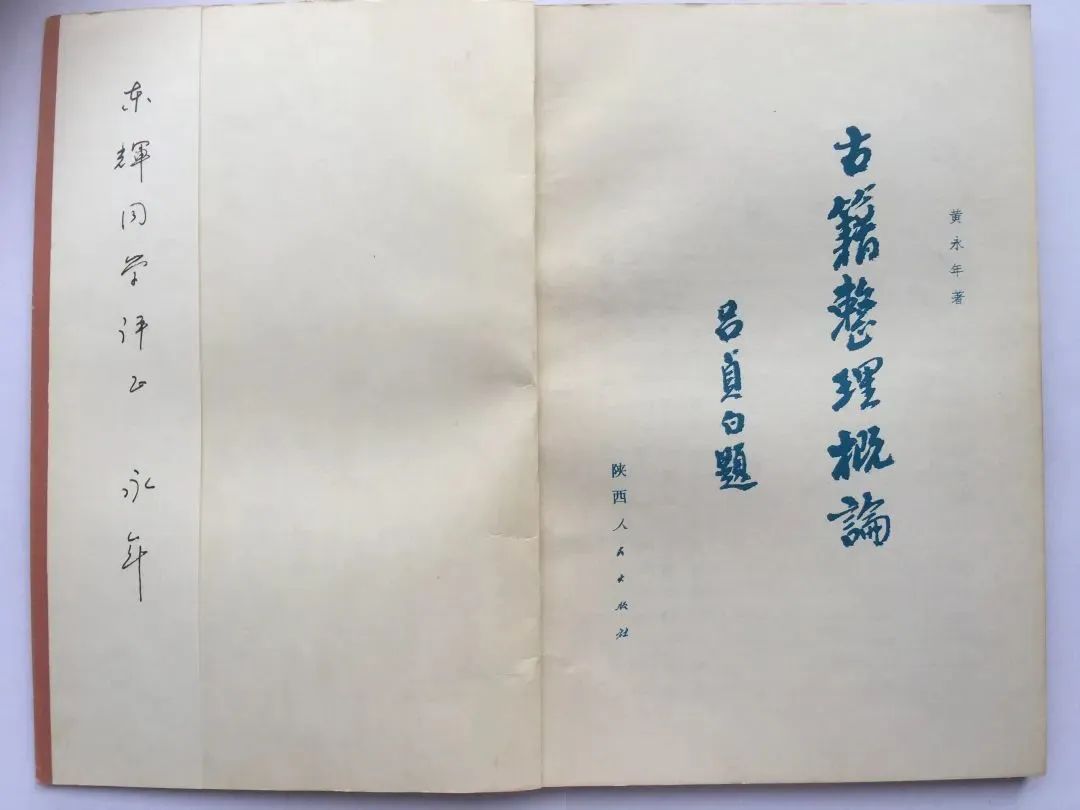 黄永年著
古籍整理概論
吕貞白題
陕西人民出版社
东輝同学评正
永年